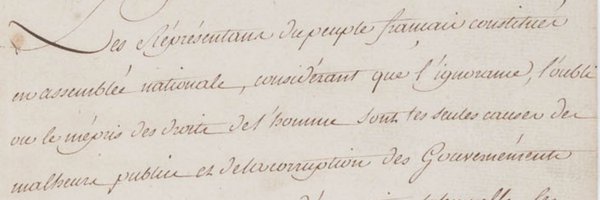 Les Réprésentans du peuple francais constitués
en assemblée nationale, considérant que l'ignorance, l'oubli
ou le mépris des droits de l'homme sont les seules causes des
malheurs publics et de la corruption des Gouvernéments